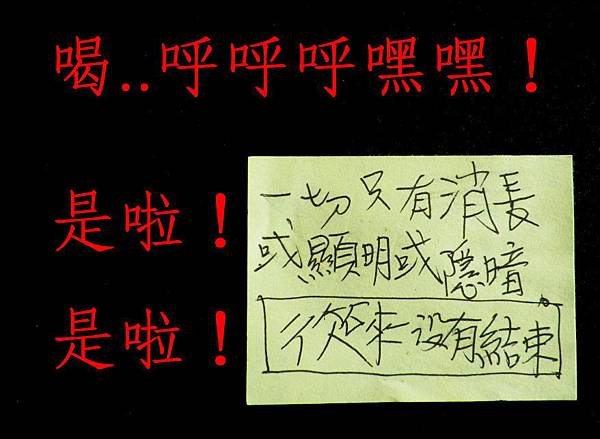 喝..呼呼呼嘿嘿！
是啦！
是啦！
一切只有消長
或顯明或隱暗。
從來没有結束